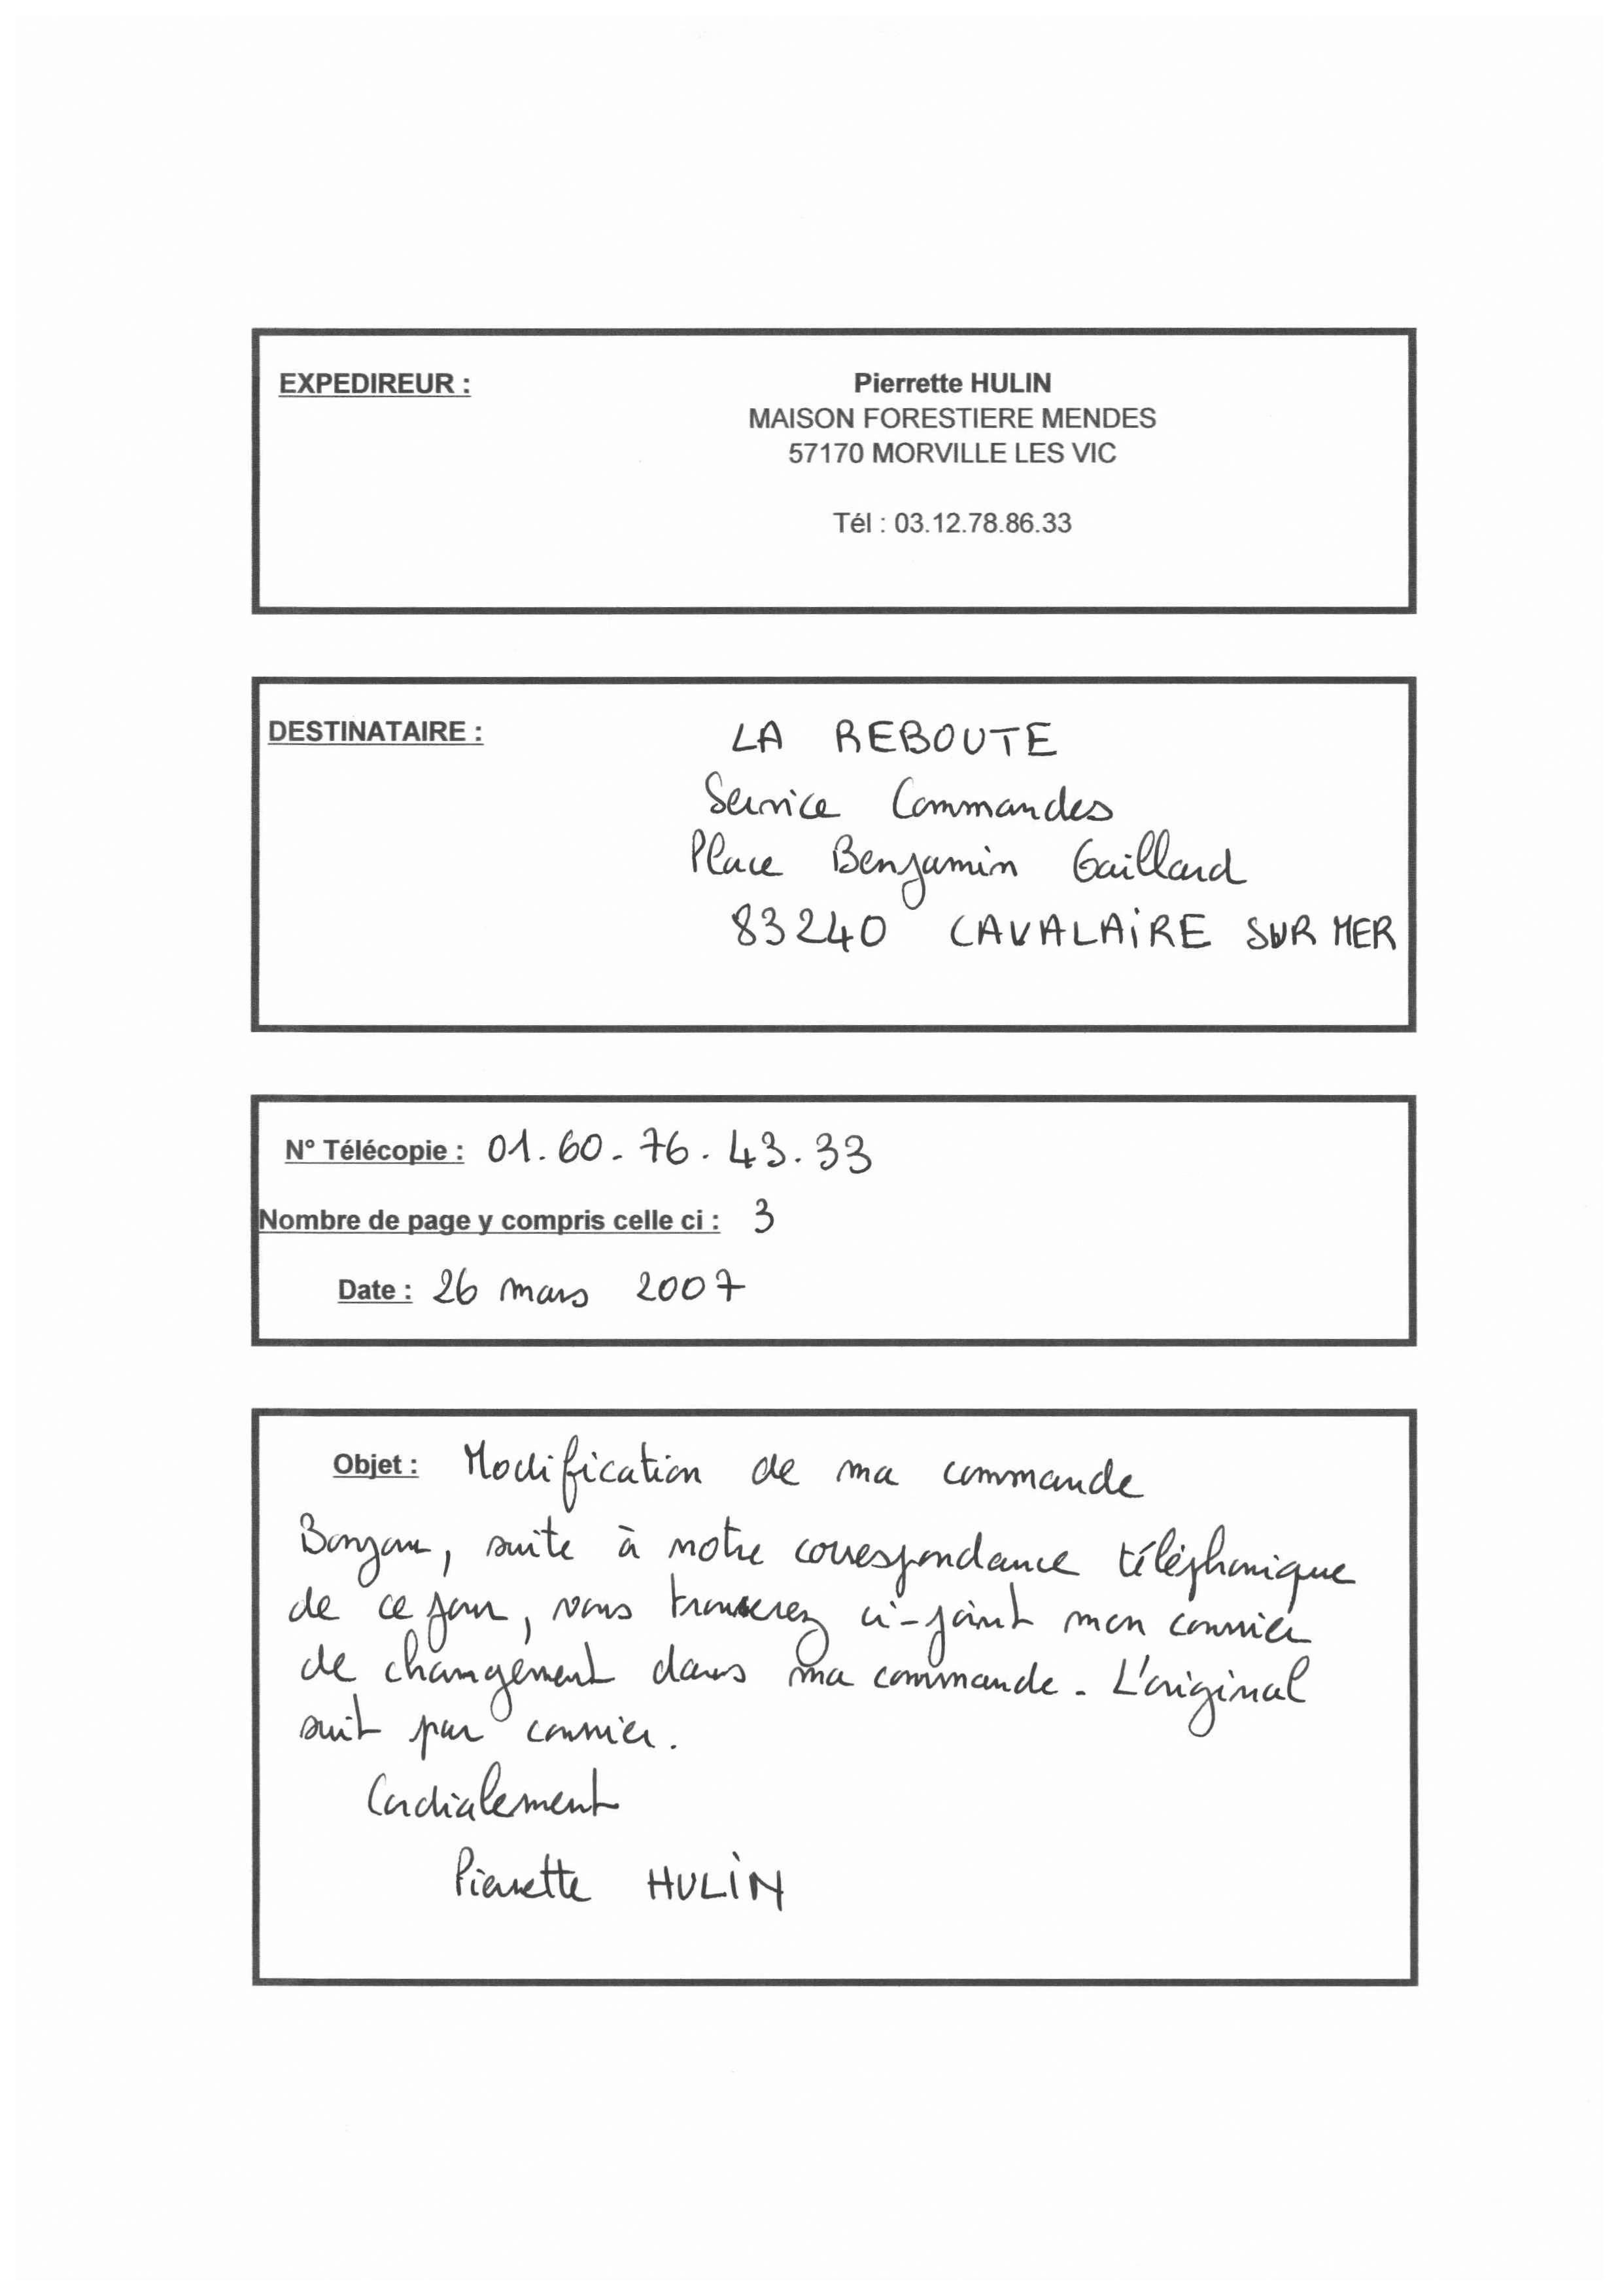 EXPEDIREUR :
Pierrette HULIN
MAISON FORESTIERE MENDES
57170 MORVILLE LES VIC
Tél : 03.12.78.86.33
DESTINATAIRE :
LA REBOUTE
Service Commandes
Place Benjamin Gaillard
83240 CAVALAIRE SUR MER
N° Télécopie : 01.60.76.43.33
Nombre de page y compris celle ci : 3
Date : 26 mars 2007
Objet : Modification de ma commande
Bonjour, suite à notre correspondance téléphonique
de ce jour, vous trouverez ci-joint mon courrier
de changement dans ma commande. L'original
suit par courrier.
Cordialement
Pierrette HULIN